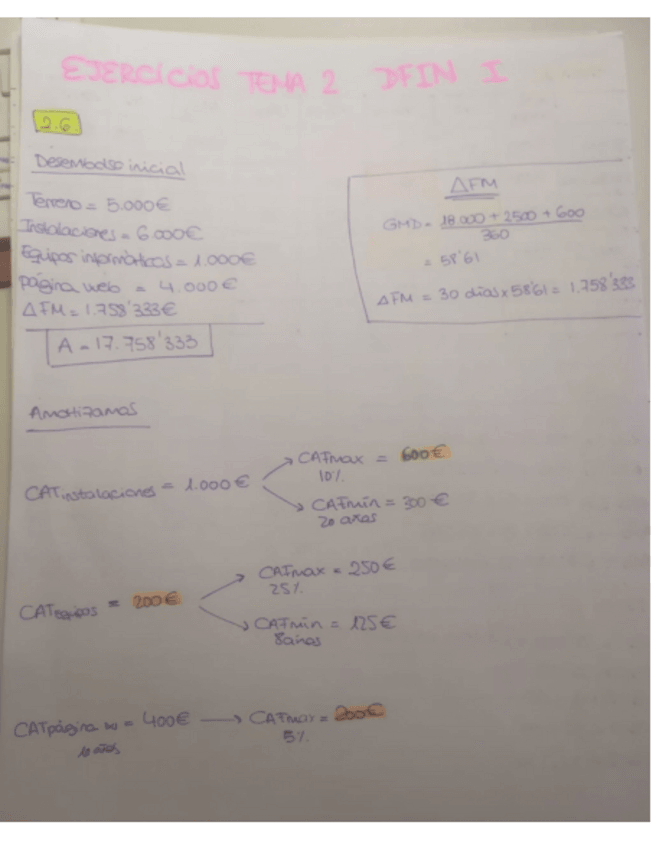 EJERCICIOS TEMA 2 DFIN I
2.6.
Desembolso inicial
Terreno = 5.000€
Instalaciones = 6.000€
Equipos informáticos = 1.000€
Página web = 4.000€
ΔFM = 1.758'333€
A = 17.758'333
ΔFM
GMD = 18.000 + 2500 + 600
360
= 58'61
ΔFM = 30 días x 58'61 = 1.758'333
Amortizamos
CATinstalaciones = 1.000€
CATmax = 600€
10%
CATmín = 300€
20 años
CATequipos = 200€
CATmax = 250€
25%
CATmin = 125€
8años
CATpágina w = 400€ → CATmax = 200€
10 años
5%